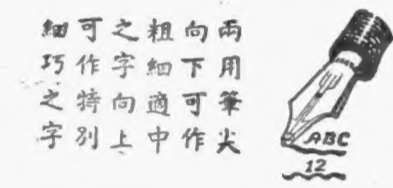 兩用筆尖
向下可作
粗細適中
之字向上
可作特別
細巧之字
ABC
12